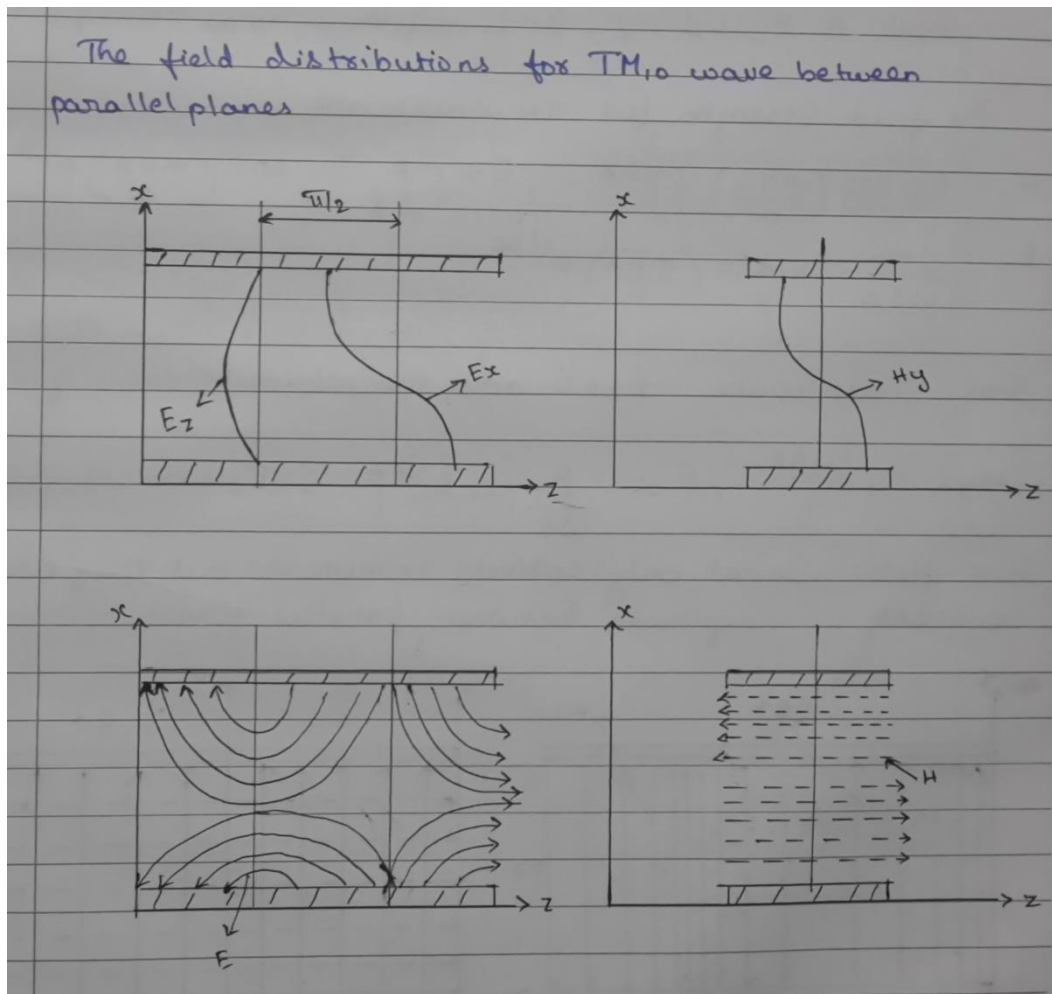 The field distributions for TM10 wave between
parallel planes
x
π/2
x
Ex
Hy
Ez
z
z
x
x
H
z
z
E